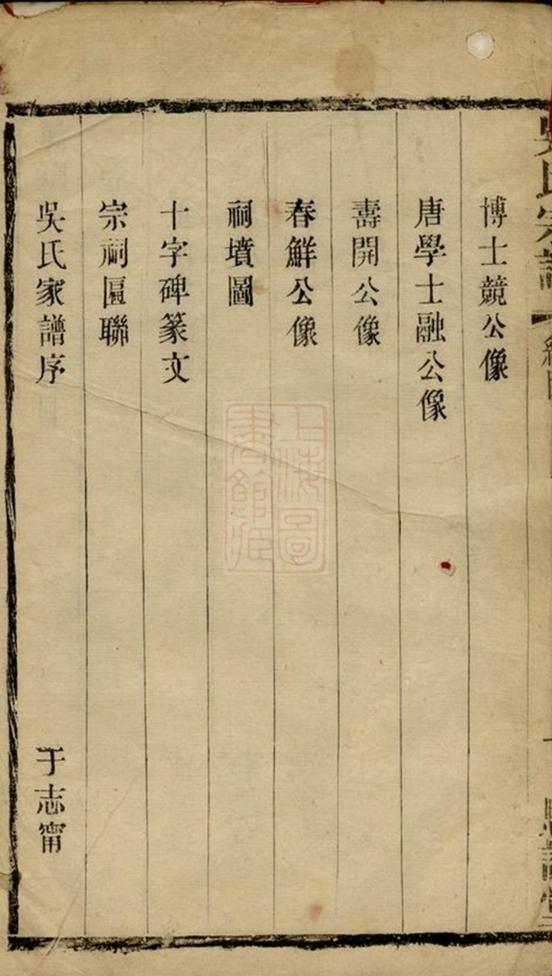 博士競公像
唐學士融公像
壽開公像
春鮮公像
祠墳圖
十字碑篆文
宗祠匾聯
吳氏家譜序 于志甯
上海圖書館藏